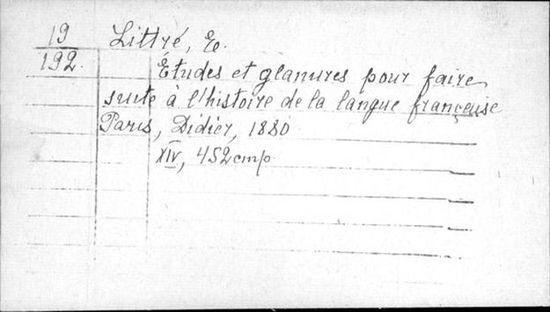 19 Littré, E.
192. Études et glanures pour faire
suite à l'histoire de la langue française
Paris, Didier, 1880
XIV, 452 стр